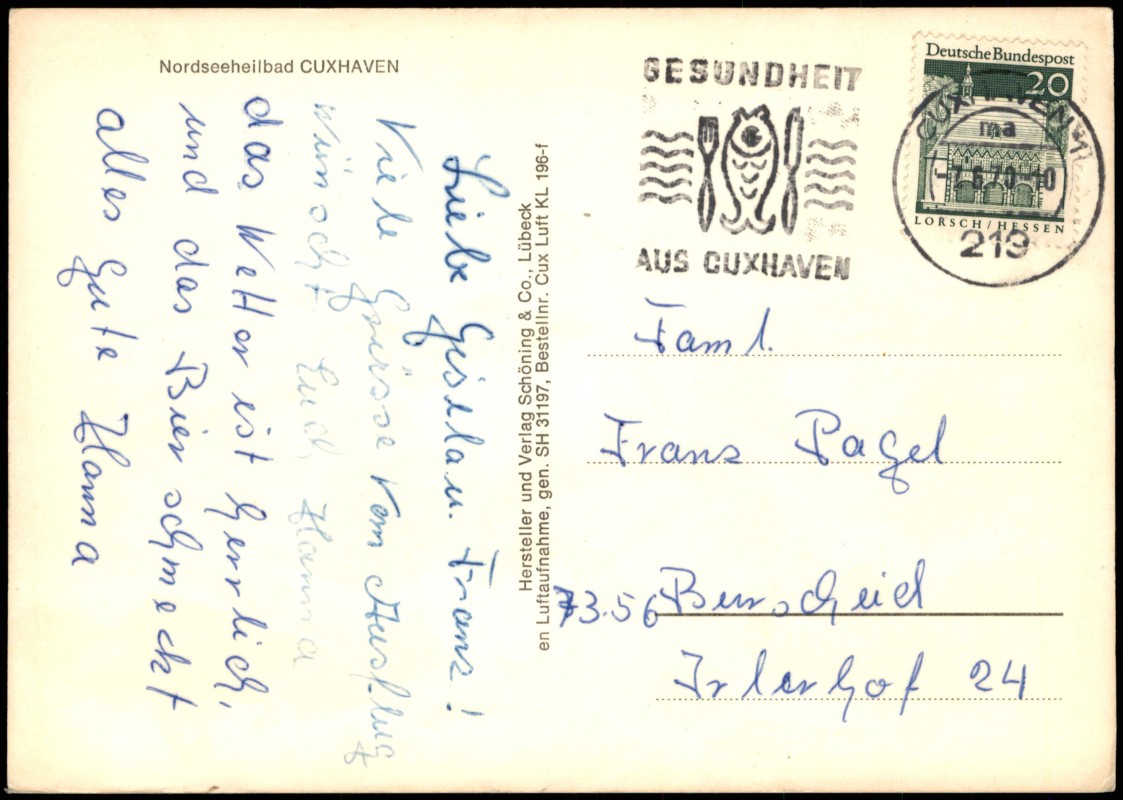 Nordseeheilbad CUXHAVEN
Liebe Gisela u. Franz!
Viele Grüsse vom Ausflug
wünscht Euch Hanna
das Wetter ist herrlich,
und das Bier schmeckt
alles gute Hanna
Hersteller und Verlag Schöning & Co., Lübeck
en Luftaufnahme, gen. SH 31197, Bestellnr. Cux Luft KL 196-f
GESUNDHEIT
AUS CUXHAVEN
Deutsche Bundespost
20
LORSCH/HESSEN
CUXHAVEN 1
ma
219
Faml.
Franz Pagel
Burscheid
Irlerhof 24